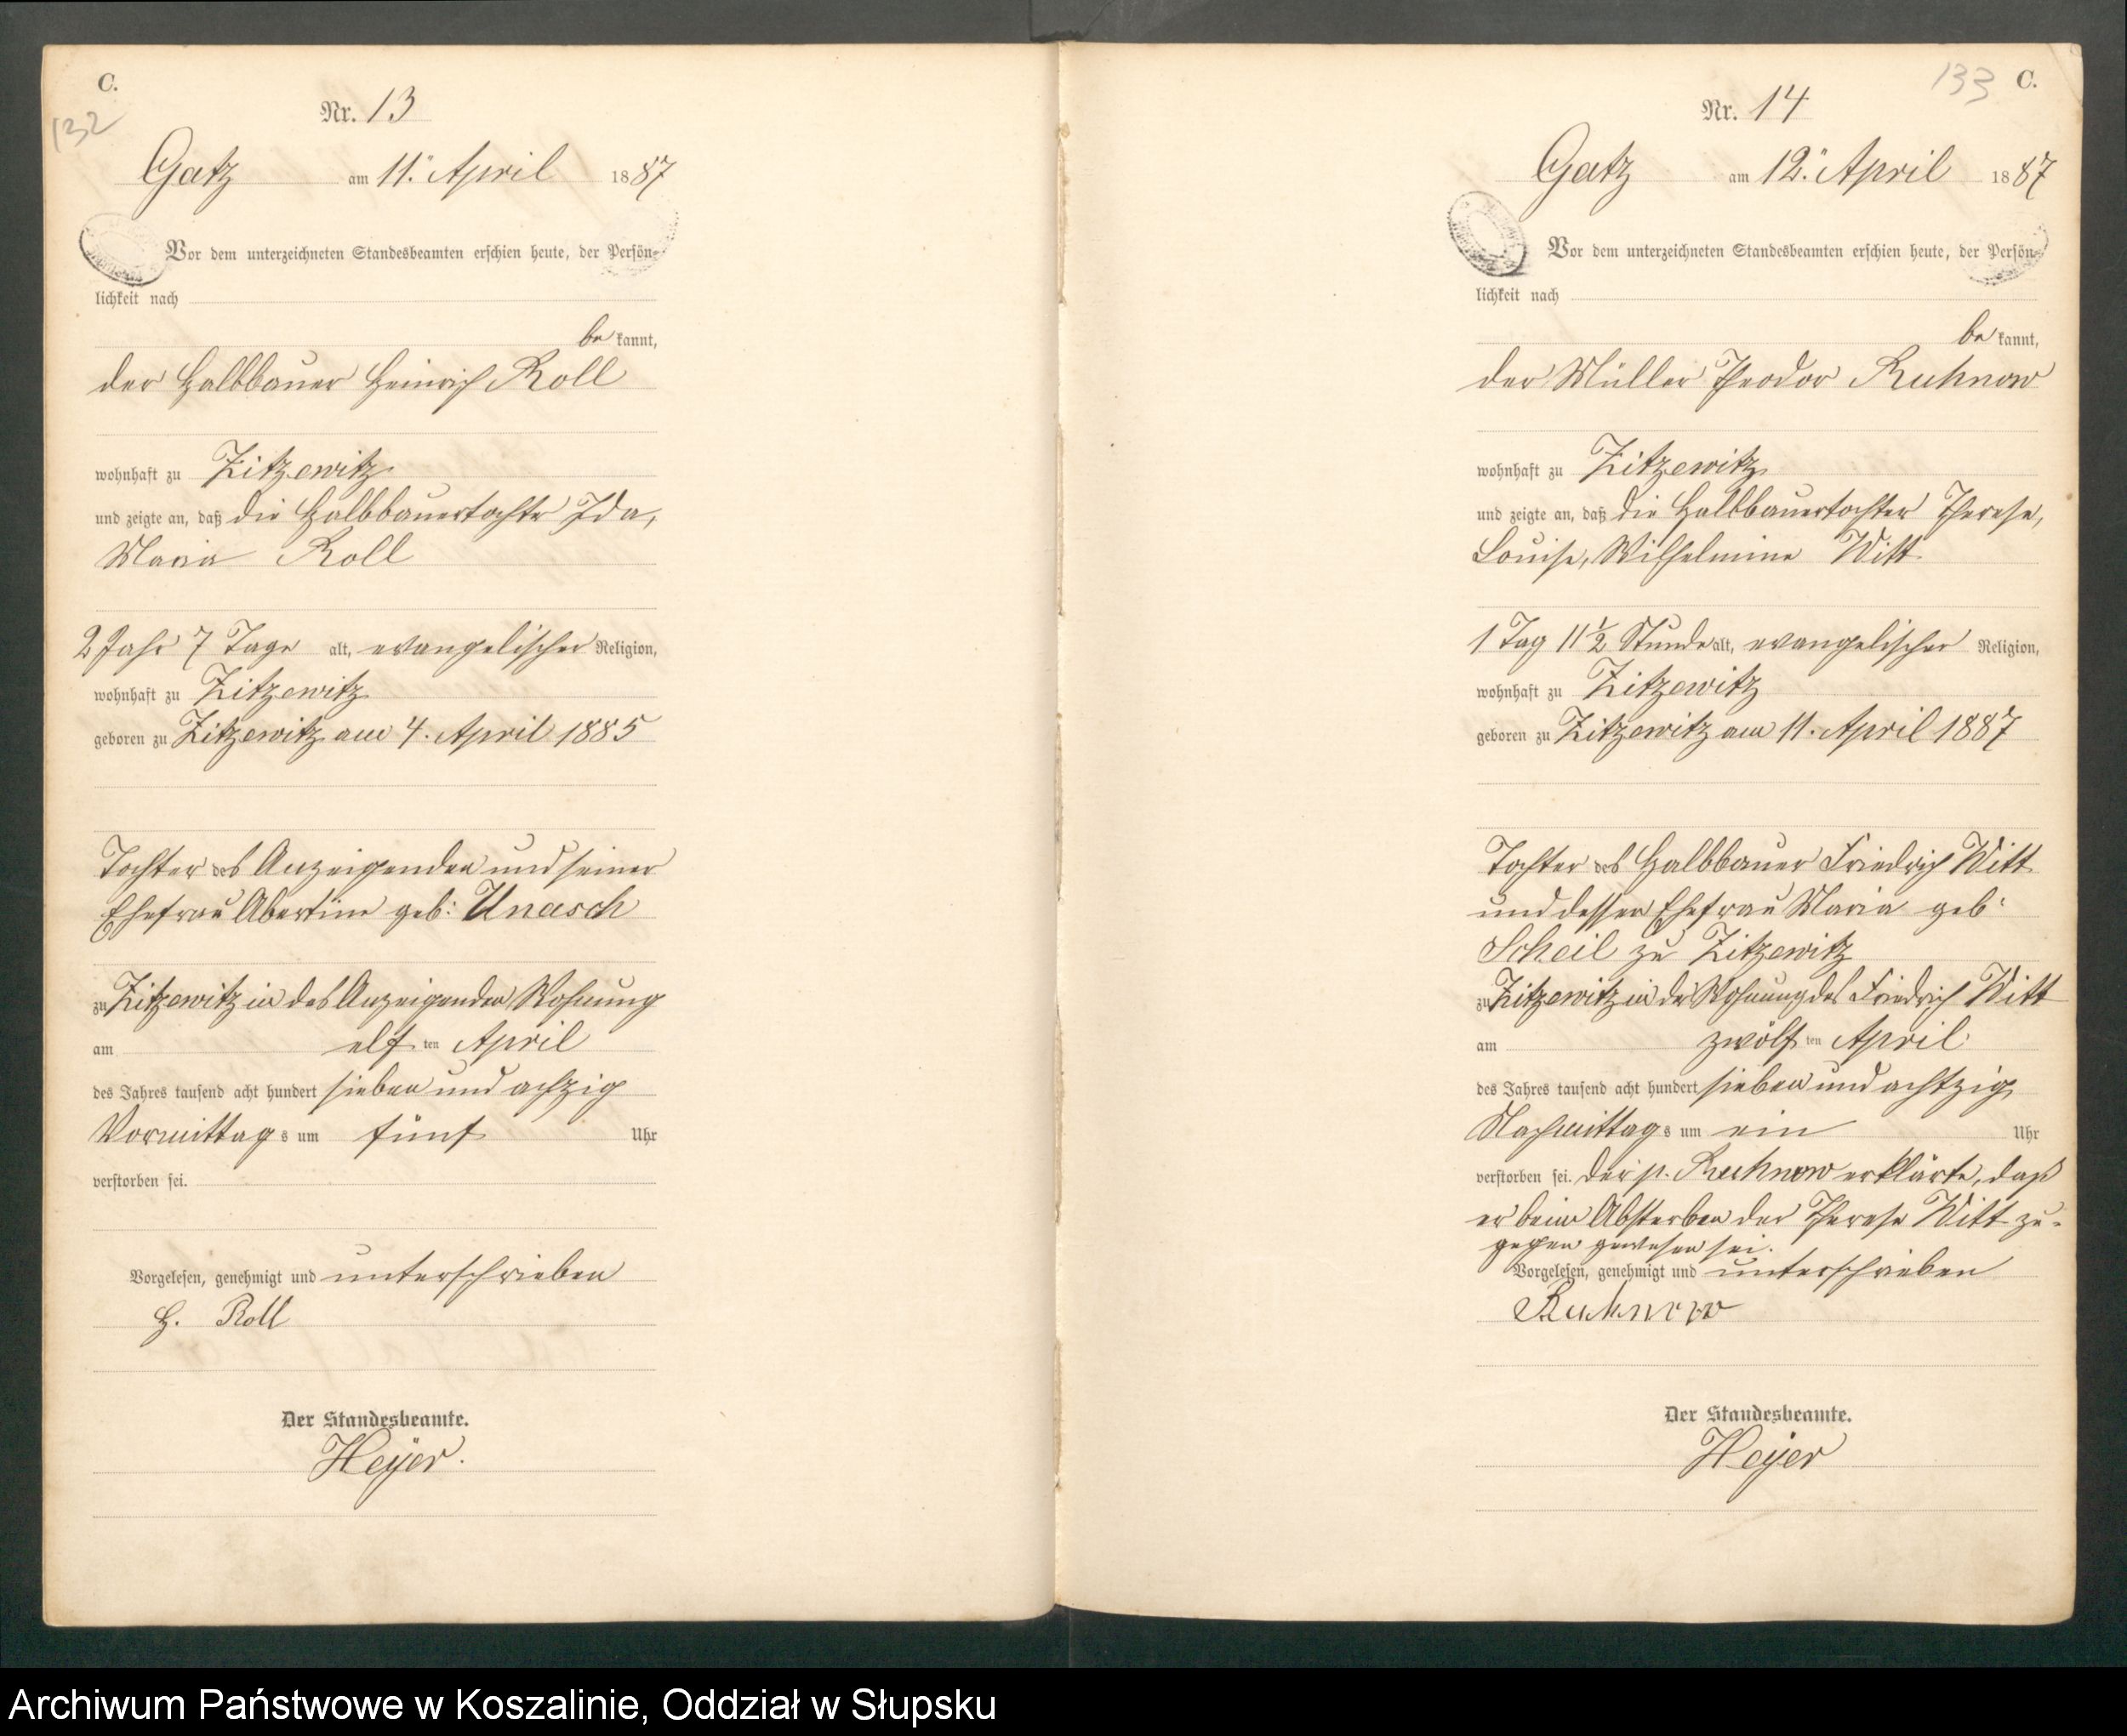 C.
132
Nr. 13
Gatz am 11. April 1887
Vor dem unterzeichneten Standesbeamten erschien heute, der Persön-
lichkeit nach
be kannt,
der Halbbauer Heinrich Roll
wohnhaft zu Zitzewitz
und zeigte an, daß die Halbbauertochter Ida,
Maria Roll
2 Jahr 7 Tage alt, evangelischer Religion,
wohnhaft zu Zitzewitz
geboren zu Zitzewitz am 4. April 1885
Tochter des Anzeigenden und seiner
Ehefrau Abertine geb: Unasch
zu Zitzewitz in des Anzeigenden Wohnung
am elf ten April
des Jahres tausend acht hundert sieben und achzig
Vormittag s um fünf Uhr
verstorben sei.
Vorgelesen, genehmigt und unterschrieben
H. Roll
Der Standesbeamte.
Heyer.
133 C.
Nr. 14
Gatz am 12. April 1887
Vor dem unterzeichneten Standesbeamten erschien heute, der Persön-
lichkeit nach
be kannt,
der Müller Theodor Ruhnow
wohnhaft zu Zitzewitz
und zeigte an, daß die Halbbauertochter Therese,
Louise, Wilhelmine Witt
1 Tag 11 1/2 Stunde alt, evangelischer Religion,
wohnhaft zu Zitzewitz
geboren zu Zitzewitz am 11. April 1887
Tochter des Halbbauer Friedrich Witt
und dessen Ehefrau Maria geb:
Scheil zu Zitzewitz
zu Zitzewitz in der Wohnung des Friedrich Witt
am zwölf ten April
des Jahres tausend acht hundert sieben und achtzig
Nachmittag s um ein Uhr
verstorben sei. Der p. Ruhnow erklärte, daß
er beim Absterben der Therese Witt zu-
gegen gewesen sei.
Vorgelesen, genehmigt und unterschrieben
Ruhnow
Der Standesbeamte.
Heyer
Archiwum Państwowe w Koszalinie, Oddział w Słupsku